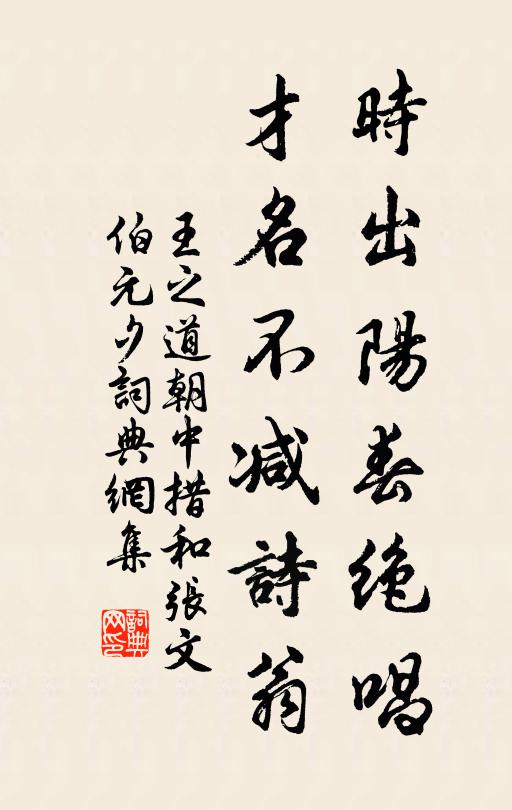 時出陽春絶唱
才名不減詩翁
王之道朝中措和張文
伯元夕詞典網集
詞典
网印